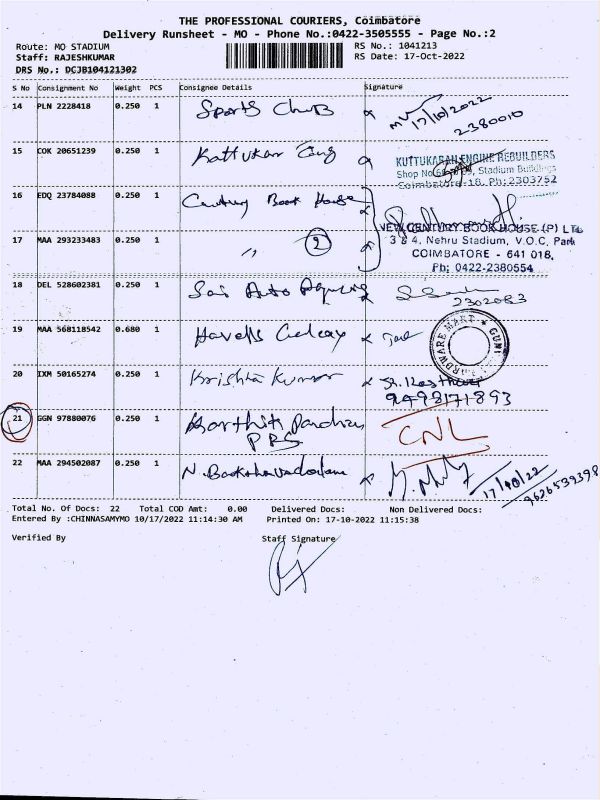 THE PROFESSIONAL COURIERS, Coimbatore
Delivery Runsheet - MO - Phone No.:0422-3505555 - Page No.:2
Route: MO STADIUM
Staff: RAJESHKUMAR
DRS No.: DCJB104121302
RS No.: 1041213
RS Date: 17-Oct-2022
S No Consignment No Weight PCS Consignee Details Signature
14 PLN 2228418 0.250 1 Sports Club 17/10/2022
2380010
15 COK 20651239 0.250 1 Kattukar Eng
KUTTUKARAN ENGINE REBUILDERS
Stadium Buildings
Coimbatore-18. Ph: 2303752
16 EDQ 23784088 0.250 1 Century Book House
NEW CENTURY BOOK HOUSE (P) LTD
17 MAA 293233483 0.250 1 " 2
3 & 4, Nehru Stadium, V.O.C. Park
COIMBATORE - 641 018.
Ph: 0422-2380554
18 DEL 528602381 0.250 1 Sai Auto
2302083
19 MAA 568118542 0.680 1 Havells Galaxy
HARDWARE MART
20 IXM 50165274 0.250 1 Krishna Kumar
9498171893
21 GGN 97880076 0.250 1 Karthik Pandian CNL
PRS
22 MAA 294502087 0.250 1 N. 17/10/22
9626539398
Total No. Of Docs: 22 Total COD Amt: 0.00 Delivered Docs: Non Delivered Docs:
Entered By :CHINNASAMYMO 10/17/2022 11:14:30 AM Printed On: 17-10-2022 11:15:38
Verified By Staff Signature